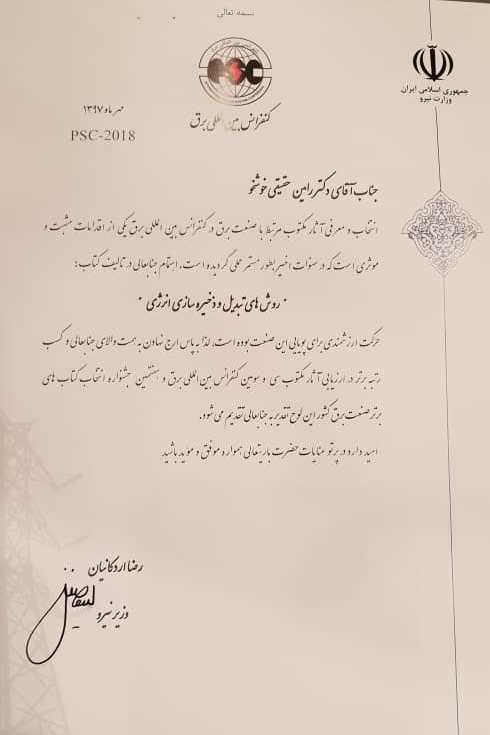 بسمه تعالی
PSC
جمهوری اسلامی ایران
وزارت نیرو
کنفرانس بین المللی برق
مهر ماه ۱۳۹۷
PSC-2018
جناب آقای دکتر رامین حقیقی خوشخو
انتخاب و معرفی آثار مکتوب مرتبط با صنعت برق در کنفرانس بین المللی برق یکی از اقدامات مثبت و
موثری است که در سنوات اخیر بطور مستمر عملی گردیده است، اهتمام جنابعالی در تالیف کتاب:
" روش های تبدیل و ذخیره سازی انرژی "
حرکت ارزشمندی برای پویایی این صنعت بوده است، لذا به پاس ارج نهادن به همت والای جنابعالی و کسب
رتبه برتر در ارزیابی آثار مکتوب سی و سومین کنفرانس بین المللی برق و هفتمین جشنواره انتخاب کتاب های
برتر صنعت برق کشور این لوح تقدیر به جنابعالی تقدیم می شود.
امید دارد در پرتو عنایات حضرت باریتعالی همواره موفق و موید باشید
رضا اردکانیان
وزیر نیرو